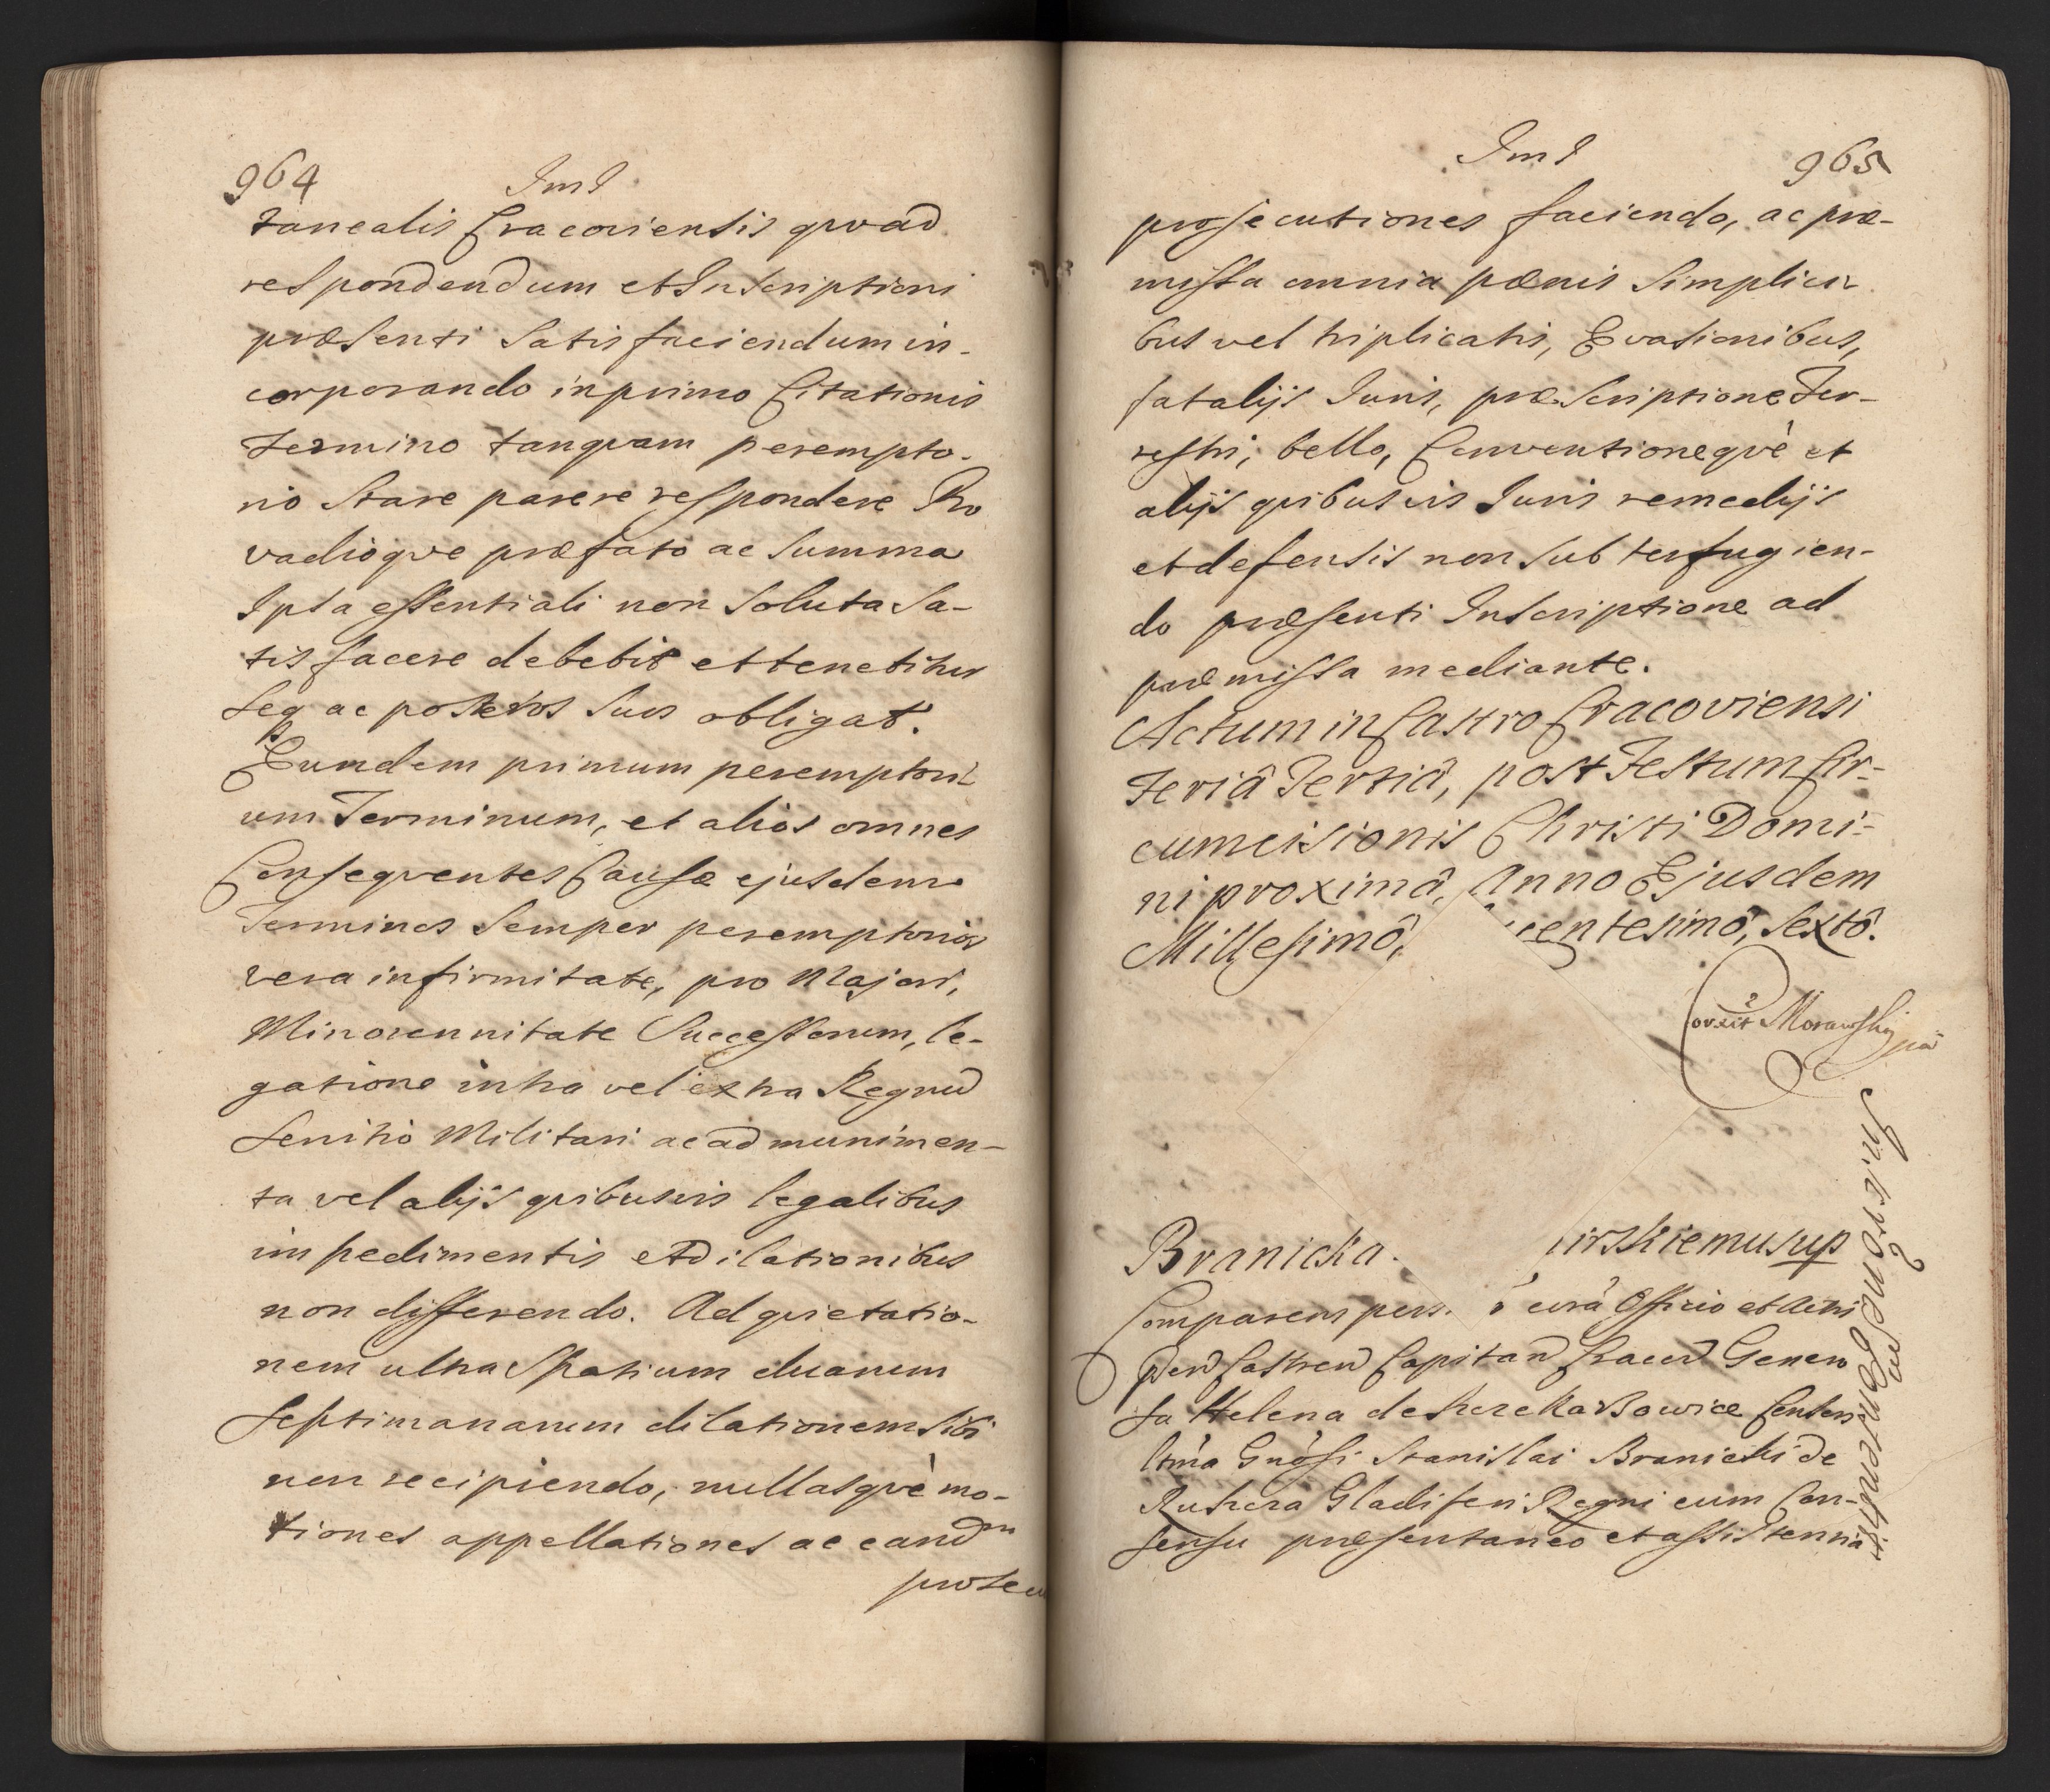 964 Im I
tanealis Cracoviensis quoad
respondendum et Inscriptioni
præsenti Satisfaciendum in-
corporando in primo Citationis
Termino tanquam perempto-
rio Stare parere respondere Pro
vadioque præfato ac Summa
Ipsa essentiali non Soluta Sa-
tisfacere debebit et tenebitur
Seq ac posteros Suos obligat.
Eundem primum peremptori-
um Terminum, et alios omnes
Consequentes Causæ ejusdem
Terminos Semper peremptorios
vera infirmitate, pro Majori,
Minorennitate Successorum, le-
gatione intra vel extra Regnu
Servitio Militari ac ad munimen-
ta vel alijs quibusvis legalibus
impedimentis et dilationibus
non differendo. Ad quietatio-
nem ultra Spatium duarum
Septimanarum dilationem Sibi
non recipiendo, nullasquè mo-
tiones appellationes ac eand m
prosecu
Im I 965
prosecutiones faciendo, ac præ-
missa omnia pænis Simplici-
bus vel triplicatis, Evasionibus,
fatalijs Juris, præscriptione Ter-
restri, bello, Conventionequè et
alijs quibusvis Juris remedijs
et defensis non Subterfugien-
do præsenti Inscriptione ad
præmissa mediante.
Actum in Castro Cracoviensi
Feriâ Tertiâ, post Festum Cir-
cumcisionis Christi Domi-
ni proximâ, Anno Ejusdem
Millesimô, centesimô, Sextô.
Correxit Morawski
Branicka. irskiemu sup
Comparens pers. corâ Officio et Actis
pnd Castren Capitan Cracov Genero
sa Helena de Consors
ltma Gnosi Stanislai Branicki de
Ruszcza Gladiferi Regni cum Con-
sensu præsentaneo et assistentia